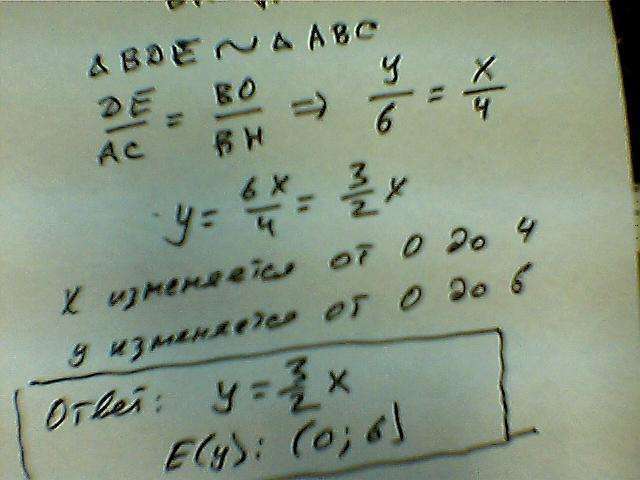 △ BDE ~ △ ABC
DE/AC = BO/BH ⇒ y/6 = x/4
y = 6x/4 = 3/2 x
x изменяется от 0 до 4
y изменяется от 0 до 6
Ответ: y = 3/2 x
E(y): (0; 6)